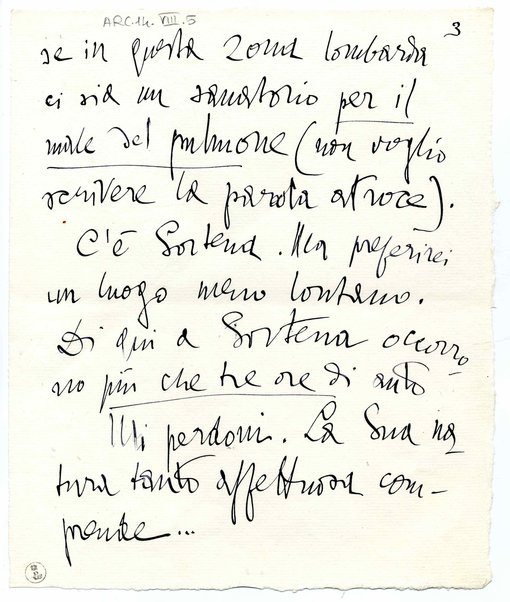 ARC.14.VIII.5
3
se in questa zona lombarda
ci sia un sanatorio per il
male del pulmone (non voglio
scrivere la parola atroce).
C'è Sortena. Ma preferirei
un luogo meno lontano.
Di qui a Sortena occorro-
no più che tre ore di auto
Mi perdoni. La Sua na-
tura tanto affettuosa com-
prende...